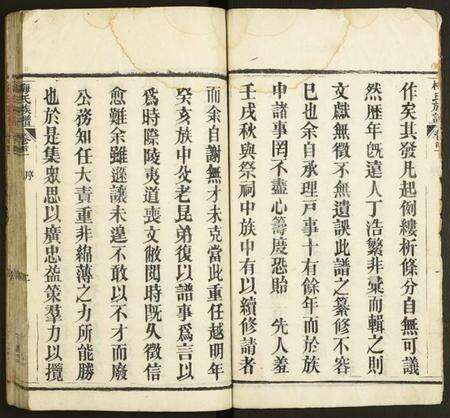 作矣其發凡起例縷析條分自無可議
然歷年旣遠人丁浩繁非彙而輯之則
文獻無徵不無遺誤此譜之纂修不容
已也余自承理戸事十有餘年而於族
中諸事罔不盡心籌度恐貽 先人羞
壬戌秋與祭祠中族中有以續修請者
而余自謝無才未克當此重任越明年
癸亥族中父老昆弟復以譜事爲言以
爲時際陵夷道喪文敝閱時既久徵信
愈難余雖遜讓未遑不敢以不才而廢
公務知任大責重非綿薄之力所能勝
也於是集衆思以廣忠益策羣力以攬
氏族譜
序